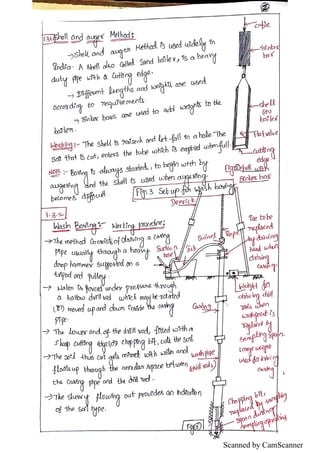 ②
1.3.1 Shell and auger Method:
→ Shell and auger Method is used widely in
India. A shell also called Sand boiler, is a heavy
duty pipe with a cutting edge.
→ Different lengths and weights are used
according to requirements
→ Sinker bars are used to add weights to the
boiler.
Working:- The shell is raised and let-fall in a hole The
Soil that is cut, enters the tube which is emptied when full.
Note:- Boring is always started, to begin with by
augering and the shell is used when augering
becomes difficult.
cable
Sinker
bar
shell
or
boiler
Flat valve
Cutting
edge
shell with
Sinker bar
Fig: 3 Set up for wash boring
1.3.2.
Wash Boring:- Working procedure;
→ The method consists of driving a casing
pipe usually through a heavy
drop hammer supported on a
tripod and pulley.
→ Water is forced under pressure through
a hollow drill rod which may be rotated
(or) moved up and down inside the casing
pipe.
→ The lower end of the drill rod, fitted with a
sharp cutting edge (or) chopping bit, cuts the soil
→ The soil thus cut gets mixed with water and
floats up through the annular space between
the casing pipe and the drill rod.
→ The slurry flowing out provides an indication
of the soil type.
Derrick
Swivel
Rope
hose
Tub
Casing
wash pipe
(drill rods)
Tie to be
replaced
by driving
load when
driving
casing
Weight for
driving drill
rods when
wash point is
replaced by
sampling spoon.
Large weight
used for driving
casing
Chopping bit
replaced by sampling
spoon during
sampling operations
Scanned by CamScanner